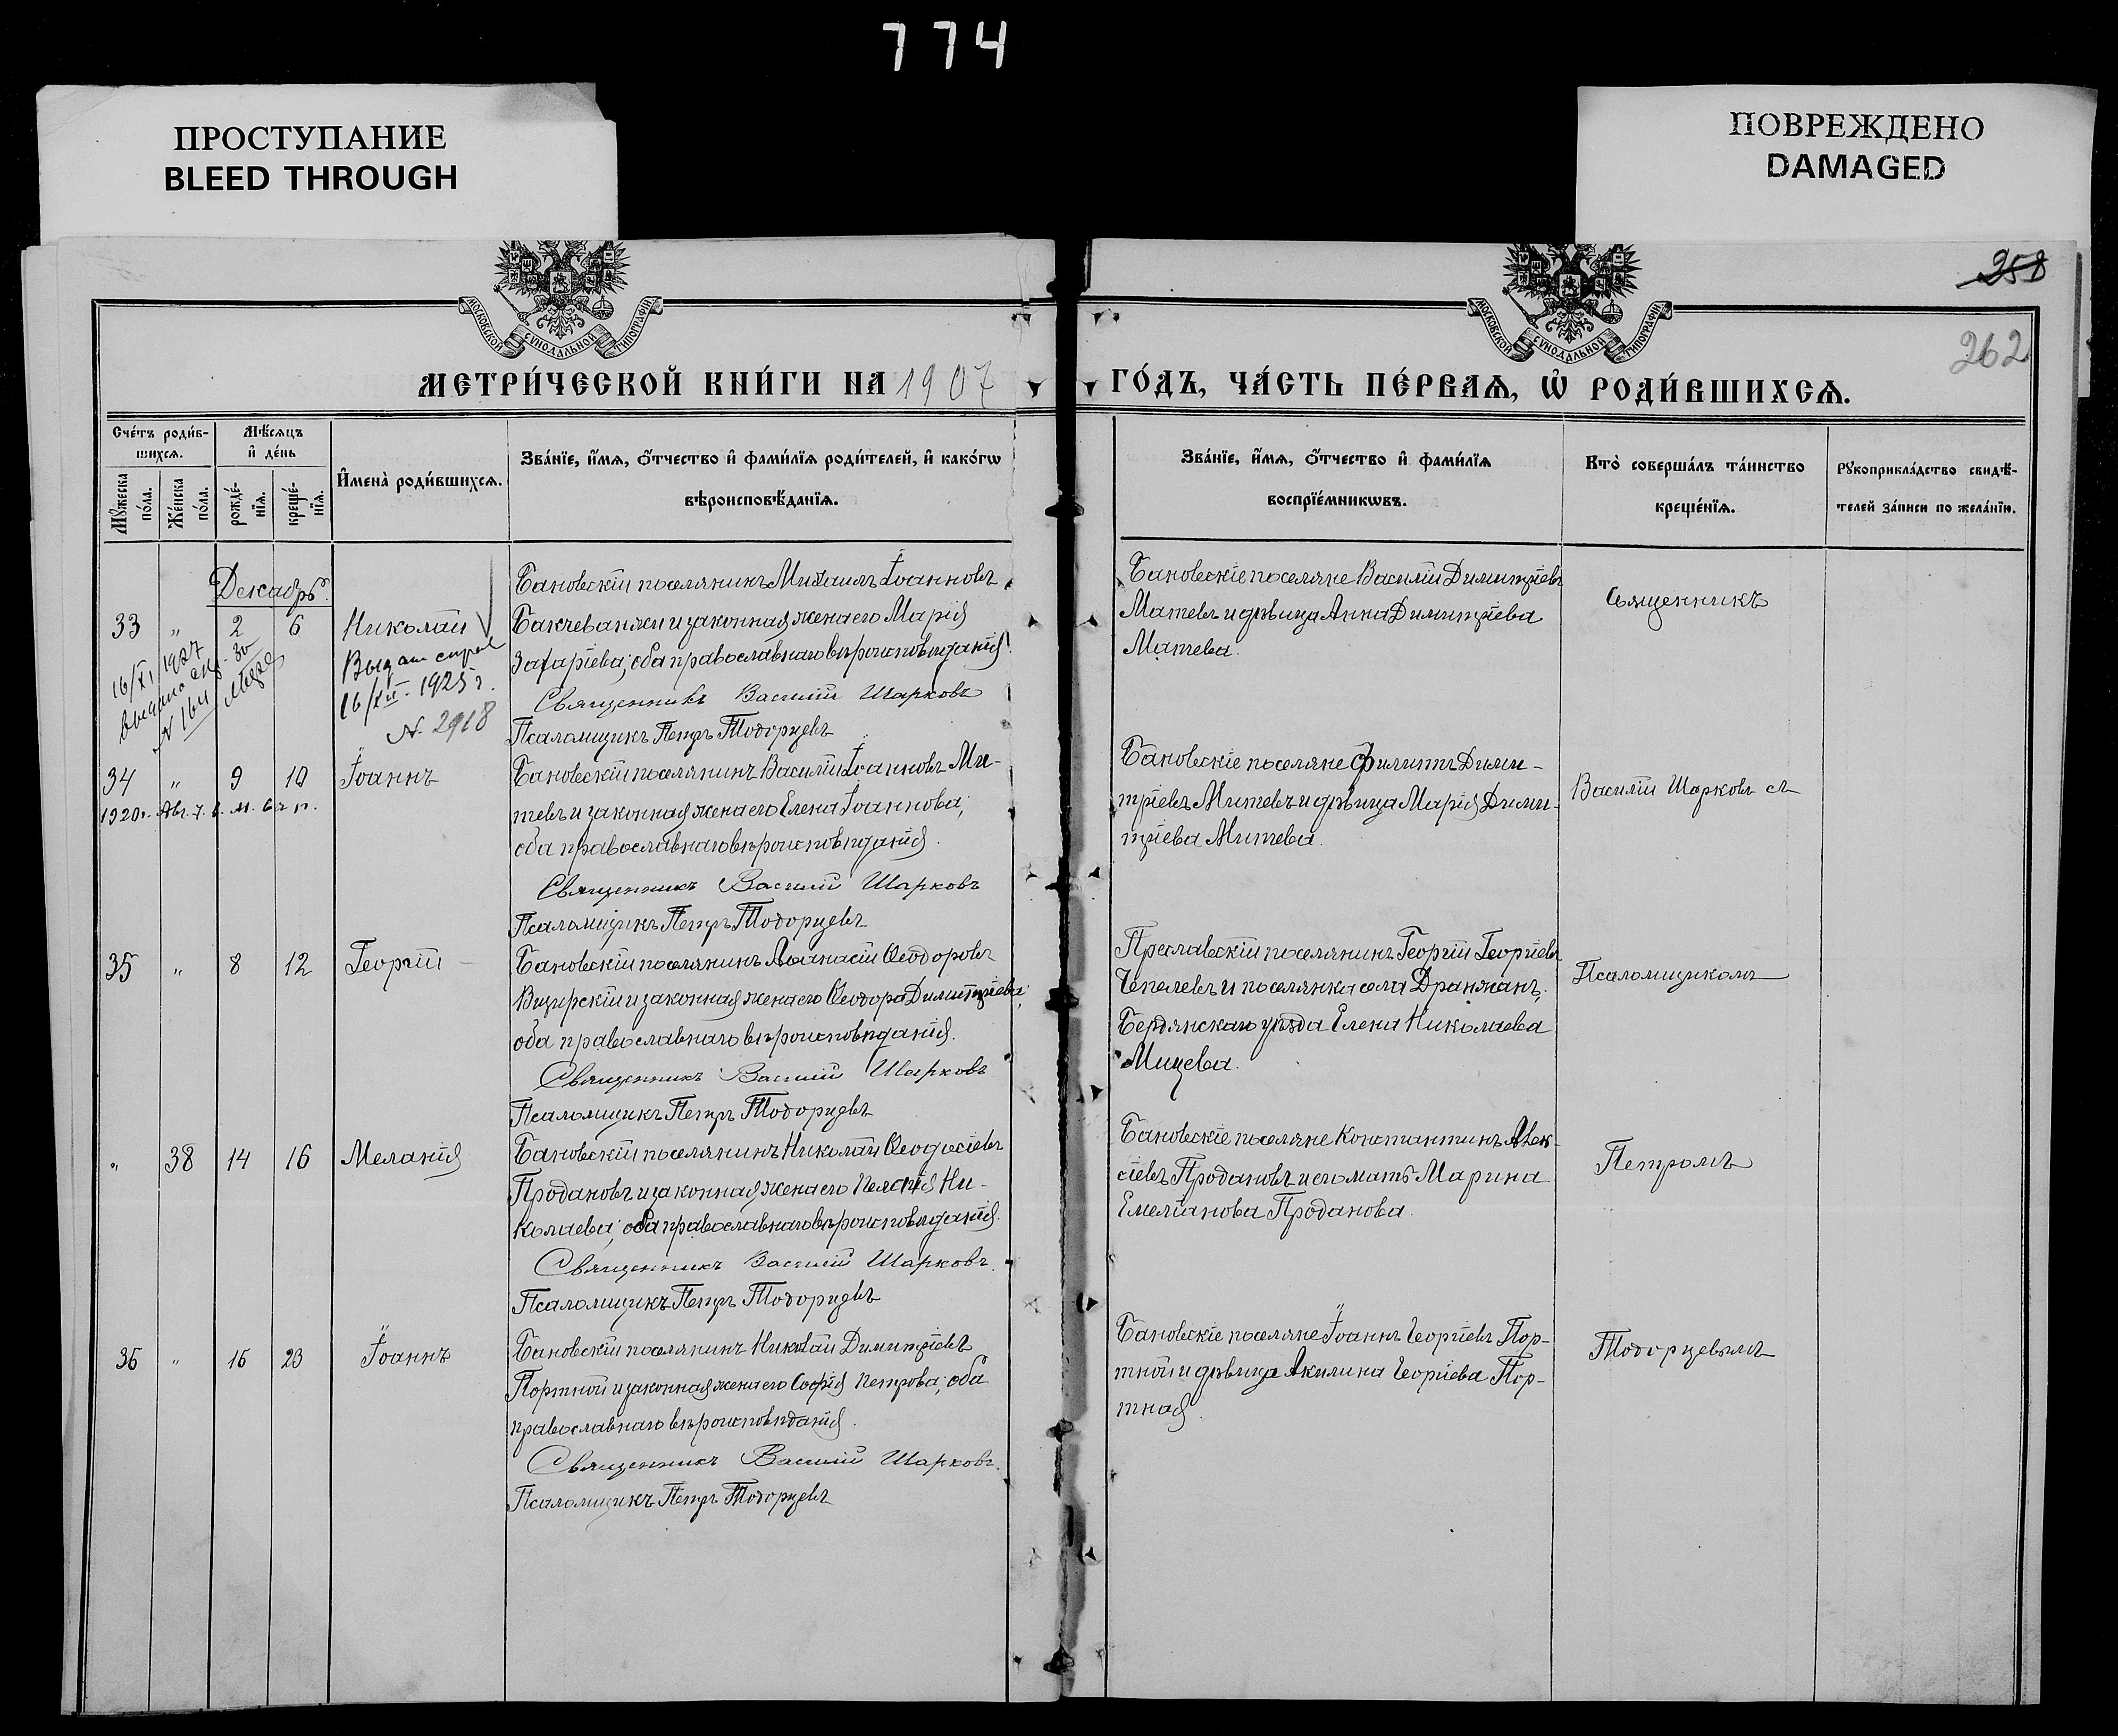 774
ПРОСТУПАНИЕ
BLEED THROUGH
ПОВРЕЖДЕНО
DAMAGED
258
262
МОСКОВСКОЙ СѴНОДАЛЬНОЙ ТИПОГРАФІИ
МОСКОВСКОЙ СѴНОДАЛЬНОЙ ТИПОГРАФІИ
МЕТРИ́ЧЕСКОЙ КНИ́ГИ НА 1907 ГО́ДЪ, ЧА́СТЬ ПЕ́РВАѦ, Ѡ҆ РОДИ́ВШИХСѦ.
Сче́тъ роди́в-
шихсѧ.
Мѣ́сѧцъ
и҆ де́нь
Мꙋ́жеска
по́ла.
Же́нска
по́ла.
рожде́-
нїѧ.
креще́-
нїѧ.
И҆мена̀ роди́вшихсѧ.
Зва́нїе, и҆́мѧ, ѻ҆́тчество и҆ фами́лїѧ роди́телей, и҆ како́гѡ
вѣроисповѣ́данїѧ.
Зва́нїе, и҆́мѧ, ѻ҆́тчество и҆ фами́лїѧ
воспрїе́мникѡвъ.
Кто̀ соверша́лъ та́инство
креще́нїѧ.
Рꙋкоприкла́дство свидѣ́-
телей за́писи по жела́нїю.
Декабрь.
33 " 2 6 Николай
16/XI 1927
выдано
N 1641
Выдан справ
16/XII - 1925 г.
N. 2918
Бановскій поселянинъ Михаилъ Іоанновъ
Бакчеванжи и законная жена его Марія
Захаріева; оба православнаго вѣроисповѣданія.
Священникъ Василій Шарковъ
Псаломщикъ Петръ Тодорцевъ
Бановскіе поселяне Василій Димитріевъ
Матевъ и дѣвица Анна Димитріева
Матева.
Священникъ
34 " 9 10 Іоаннъ
1920г. Авг. 7.
Бановскій поселянинъ Василій Іоанновъ Ми-
тевъ и законная жена его Елена Іоаннова;
оба православнаго вѣроисповѣданія.
Священникъ Василій Шарковъ
Псаломщикъ Петръ Тодорцевъ
Бановскіе поселяне Филиппъ Дими-
тріевъ Митевъ и дѣвица Марія Дими-
тріева Митева.
Василій Шарковъ съ
35 " 8 12 Георгій
Бановскій поселянинъ Аѳанасій Ѳеодоровъ
Визирскій и законная жена его Ѳеодора Димитріева;
оба православнаго вѣроисповѣданія.
Священникъ Василій Шарковъ
Псаломщикъ Петръ Тодорцевъ
Преславскій поселянинъ Георгій Георгіевъ
Чепелевъ и поселянка села Дранжанъ,
Бердянскаго уѣзда Елена Николаева
Мицева.
Псаломщикомъ
" 38 14 16 Меланія
Бановскій поселянинъ Николай Ѳеодосіевъ
Продановъ и законная жена его Пелагія Ни-
колаева; оба православнаго вѣроисповѣданія.
Священникъ Василій Шарковъ.
Псаломщикъ Петръ Тодорцевъ
Бановскіе поселяне Константинъ Алек-
сіевъ Продановъ и его мать Марина
Емеліанова Проданова.
Петромъ
36 " 16 23 Іоаннъ
Бановскій поселянинъ Николай Димитріевъ
Портной и законная жена его Софія Петрова; оба
православнаго вѣроисповѣданія.
Священникъ Василій Шарковъ.
Псаломщикъ Петръ Тодорцевъ
Бановскіе поселяне Іоаннъ Георгіевъ Пор-
тной и дѣвица Акилина Георгіева Пор-
тная.
Тодорцевымъ